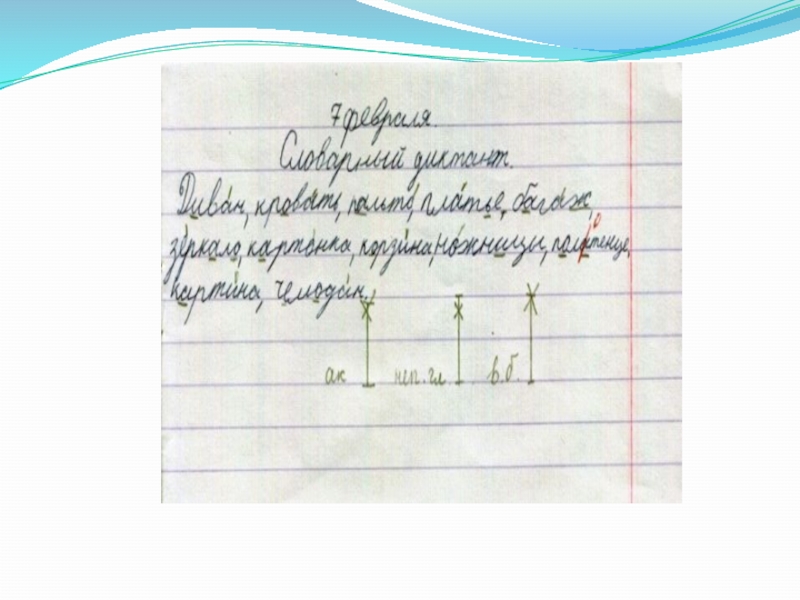 7 февраля.
Словарный диктант.
Диван, кровать, пальто, платье, багаж,
о
зеркало, картонка, корзина, ножницы, полатенце,
картина, чемодан.
ак неп.гл. в.б.